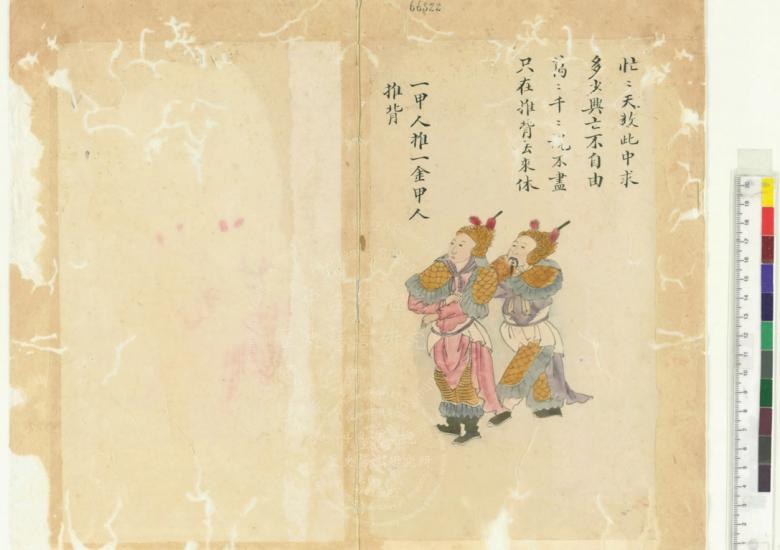 66522
忙〻天数此中求
多少興亡不自由
萬〻千〻不盡
只在推背去來休
一甲人推一金甲人
推背